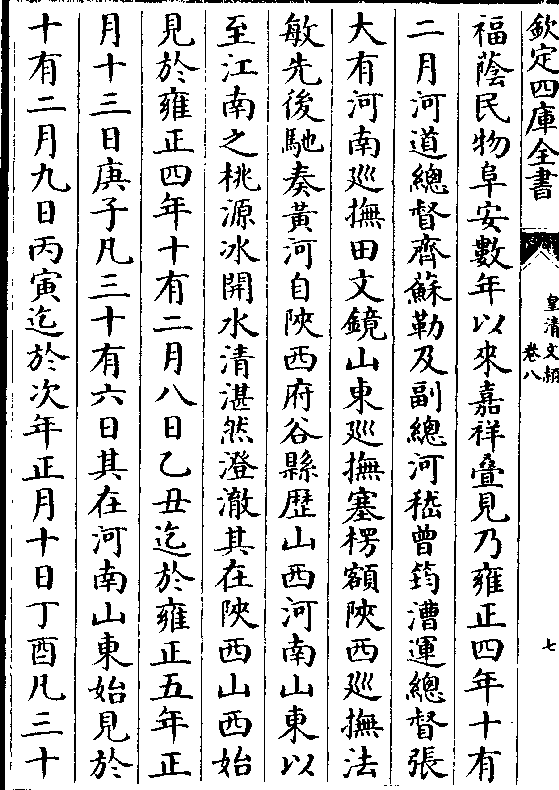 欽定四庫全書
皇清文穎
卷八
七
福蔭民物阜安數年以來嘉祥疊見乃雍正四年十有
二月河道總督齊蘇勒及副總河嵇曾筠漕運總督張
大有河南廵撫田文鏡山東廵撫塞楞額陝西廵撫法
敏先後馳奏黃河自陝西府谷縣歴山西河南山東以
至江南之桃源冰開水清湛然澄澈其在陝西山西始
見於雍正四年十有二月八日乙丑迄於雍正五年正
月十三日庚子凡三十有六日其在河南山東始見於
十有二月九日丙寅迄於次年正月十日丁酉凡三十